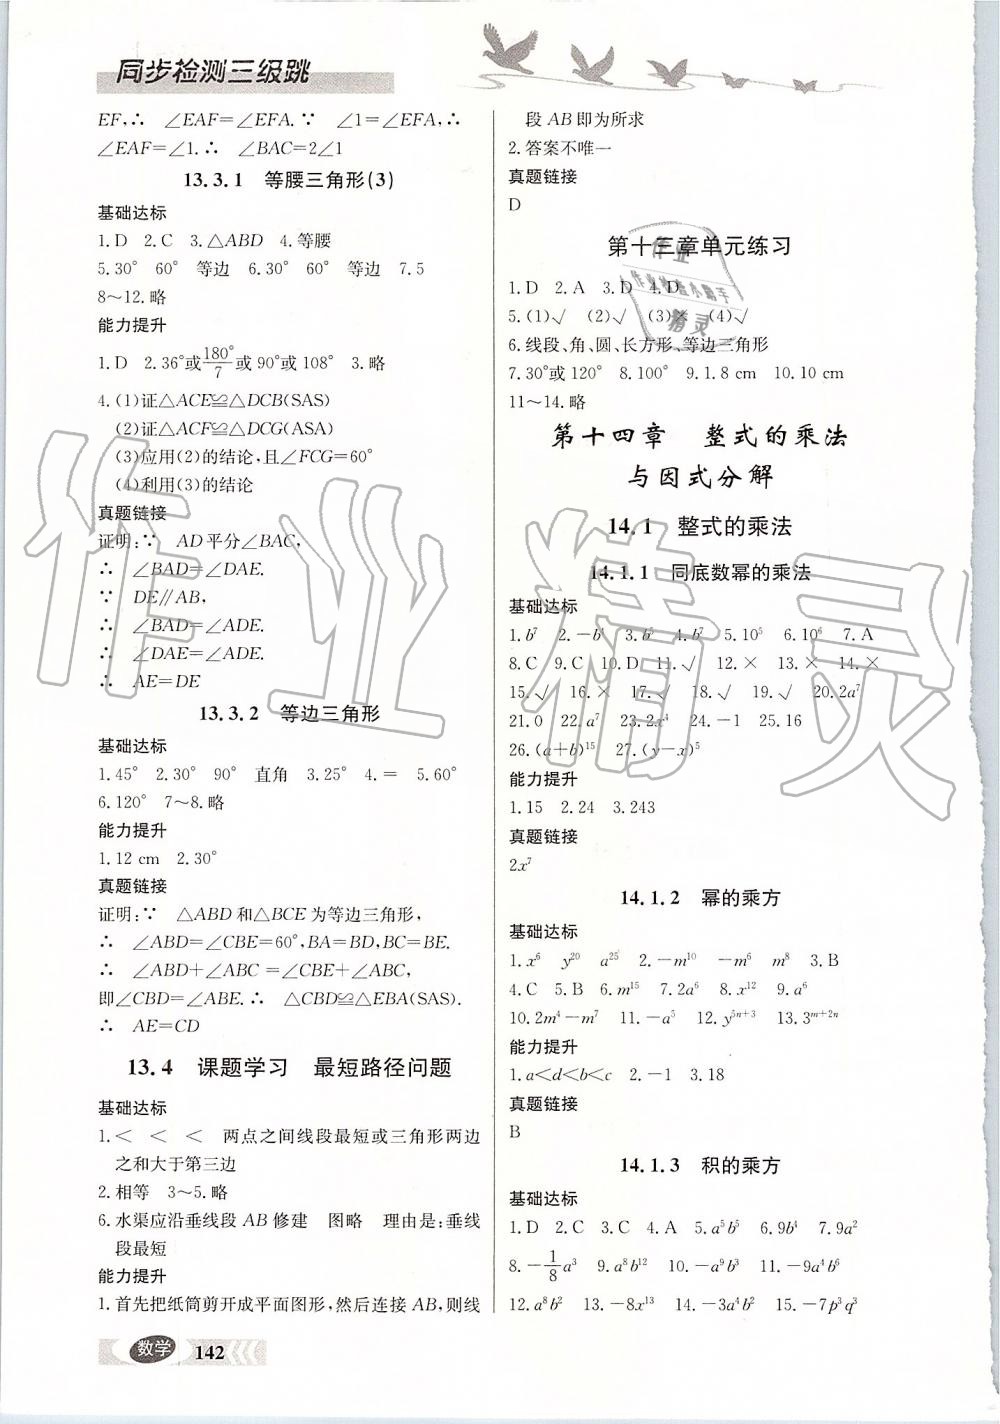 同步检测三级跳
EF,∴ ∠EAF=∠EFA.∵ ∠1=∠EFA,∴
∠EAF=∠1.∴ ∠BAC=2∠1
13.3.1 等腰三角形(3)
基础达标
1.D 2.C 3.△ABD 4.等腰
5.30° 60° 等边 6.30° 60° 等边 7.5
8～12.略
能力提升
1.D 2.36°或180°/7或90°或108° 3.略
4.(1)证△ACE≌△DCB(SAS)
(2)证△ACF≌△DCG(ASA)
(3)应用(2)的结论,且∠FCG=60°
(4)利用(3)的结论
真题链接
证明:∵ AD平分∠BAC,
∴ ∠BAD=∠DAE.
∵ DE∥AB,
∴ ∠BAD=∠ADE.
∴ ∠DAE=∠ADE.
∴ AE=DE
13.3.2 等边三角形
基础达标
1.45° 2.30° 90° 直角 3.25° 4.= 5.60°
6.120° 7～8.略
能力提升
1.12 cm 2.30°
真题链接
证明:∵ △ABD和△BCE为等边三角形,
∴ ∠ABD=∠CBE=60°,BA=BD,BC=BE.
∴ ∠ABD+∠ABC=∠CBE+∠ABC,
即∠CBD=∠ABE.∴ △CBD≌△EBA(SAS).
∴ AE=CD
13.4 课题学习 最短路径问题
基础达标
1.< < < 两点之间线段最短或三角形两边
之和大于第三边
2.相等 3～5.略
6.水渠应沿垂线段AB修建 图略 理由是:垂线
段最短
能力提升
1.首先把纸筒剪开成平面图形,然后连接AB,则线
段AB即为所求
2.答案不唯一
真题链接
D
第十三章单元练习
1.D 2.A 3.D 4.D
5.(1)√ (2)√ (3)× (4)√
6.线段、角、圆、长方形、等边三角形
7.30°或120° 8.100° 9.1.8 cm 10.10 cm
11～14.略
第十四章 整式的乘法
与因式分解
14.1 整式的乘法
14.1.1 同底数幂的乘法
基础达标
1.b⁷ 2.-b⁴ 3.b⁵ 4.b⁷ 5.10⁵ 6.10⁶ 7.A
8.C 9.C 10.D 11.√ 12.× 13.× 14.×
15.√ 16.× 17.√ 18.√ 19.√ 20.2a⁷
21.0 22.a⁷ 23.2x⁴ 24.-1 25.16
26.(a+b)¹⁵ 27.(y-x)⁵
能力提升
1.15 2.24 3.243
真题链接
2x⁷
14.1.2 幂的乘方
基础达标
1.x⁶ y²⁰ a²⁵ 2.-m¹⁰ -m⁶ m⁸ 3.B
4.C 5.B 6.m¹⁵ 7.a⁶ 8.x¹² 9.a⁶
10.2m⁴-m⁷ 11.-a⁵ 12.y⁵ⁿ⁺³ 13.3ᵐ⁺²ⁿ
能力提升
1.a<d<b<c 2.-1 3.18
真题链接
B
14.1.3 积的乘方
基础达标
1.D 2.C 3.C 4.A 5.a⁵b⁵ 6.9b⁴ 7.9a²
8.-1/8a³ 9.a⁸b¹² 10.-a⁹b³ 11.-9a⁴b⁶
12.a⁸b² 13.-8x¹³ 14.-3a⁴b² 15.-7p³q³
数学
142
作业精灵
作业
精灵